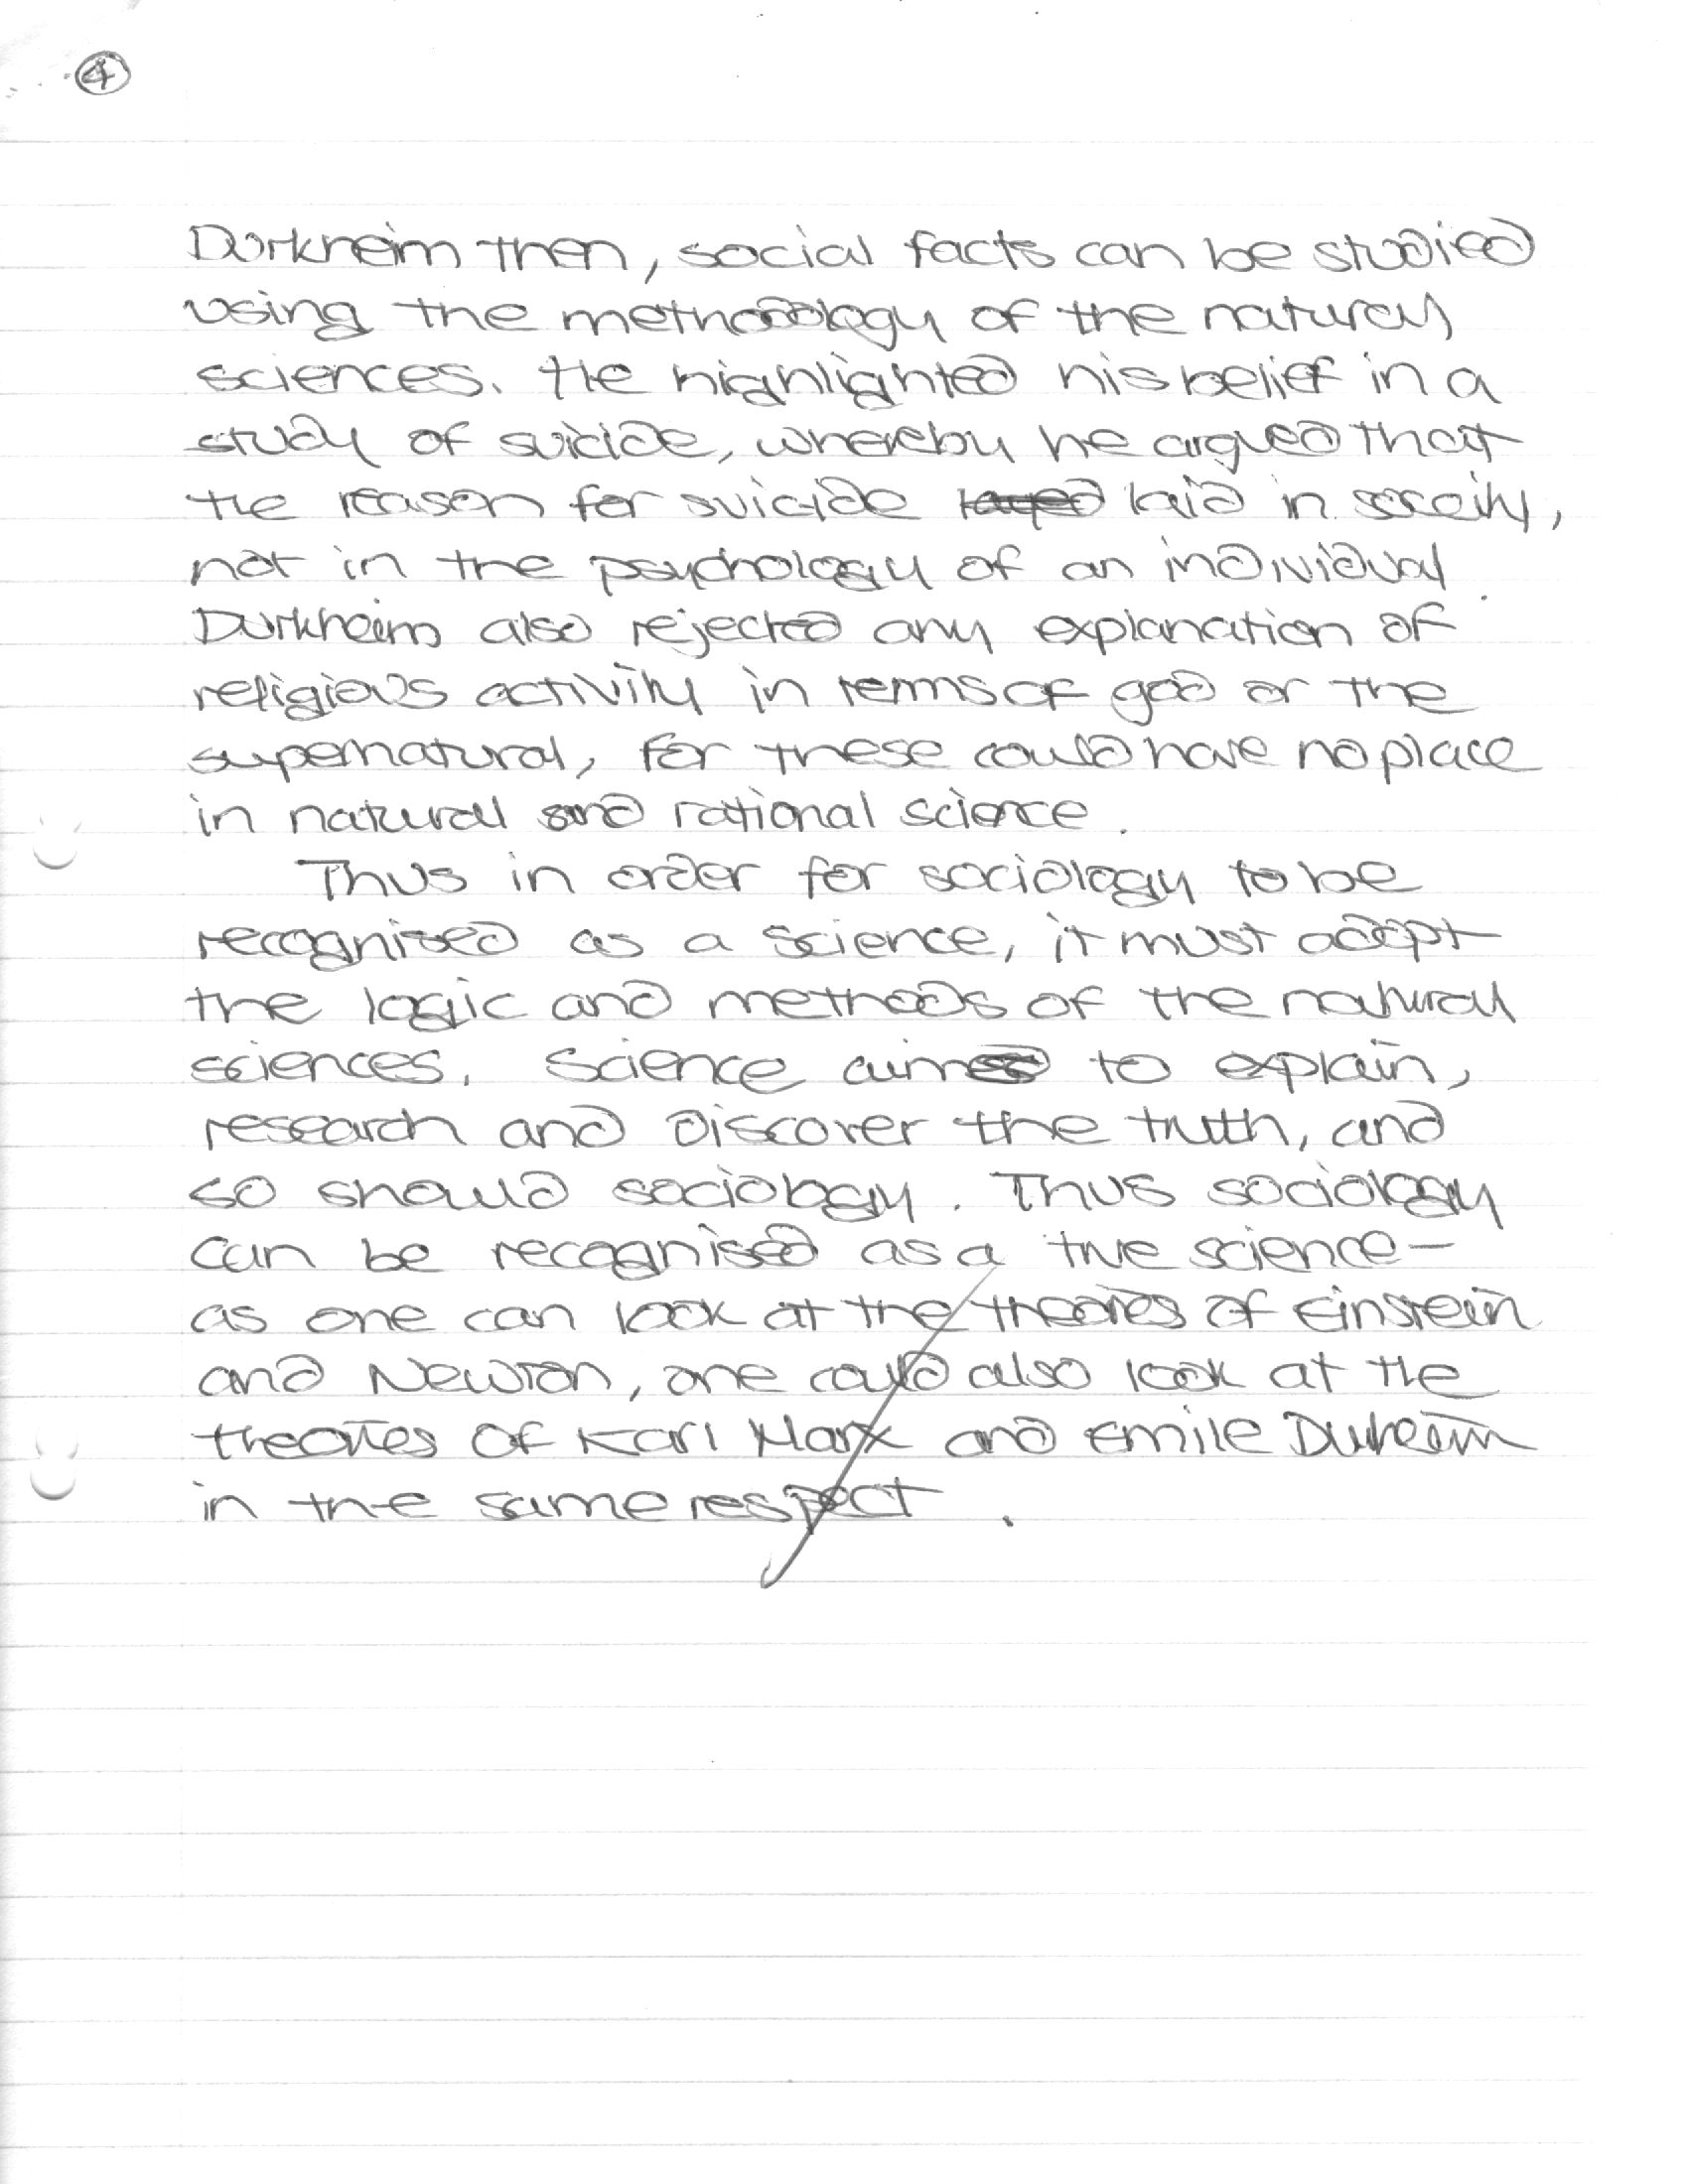 4
Durkheim then, social facts can be studied
using the methodology of the natural
sciences. He highlighted his belief in a
study of suicide, whereby he argued that
the reason for suicide laid in society,
not in the psychology of an individual.
Durkheim also rejected any explanation of
religious activity in terms of god or the
supernatural, for these could have no place
in natural and rational science.
Thus in order for sociology to be
recognised as a science, it must accept
the logic and methods of the natural
sciences. Science aims to explain,
research and discover the truth, and
so should sociology. Thus sociology
can be recognised as a true science -
as one can look at the theories of Einstein
and Newton, one could also look at the
theories of Karl Marx and Emile Durkeim
in the same respect.